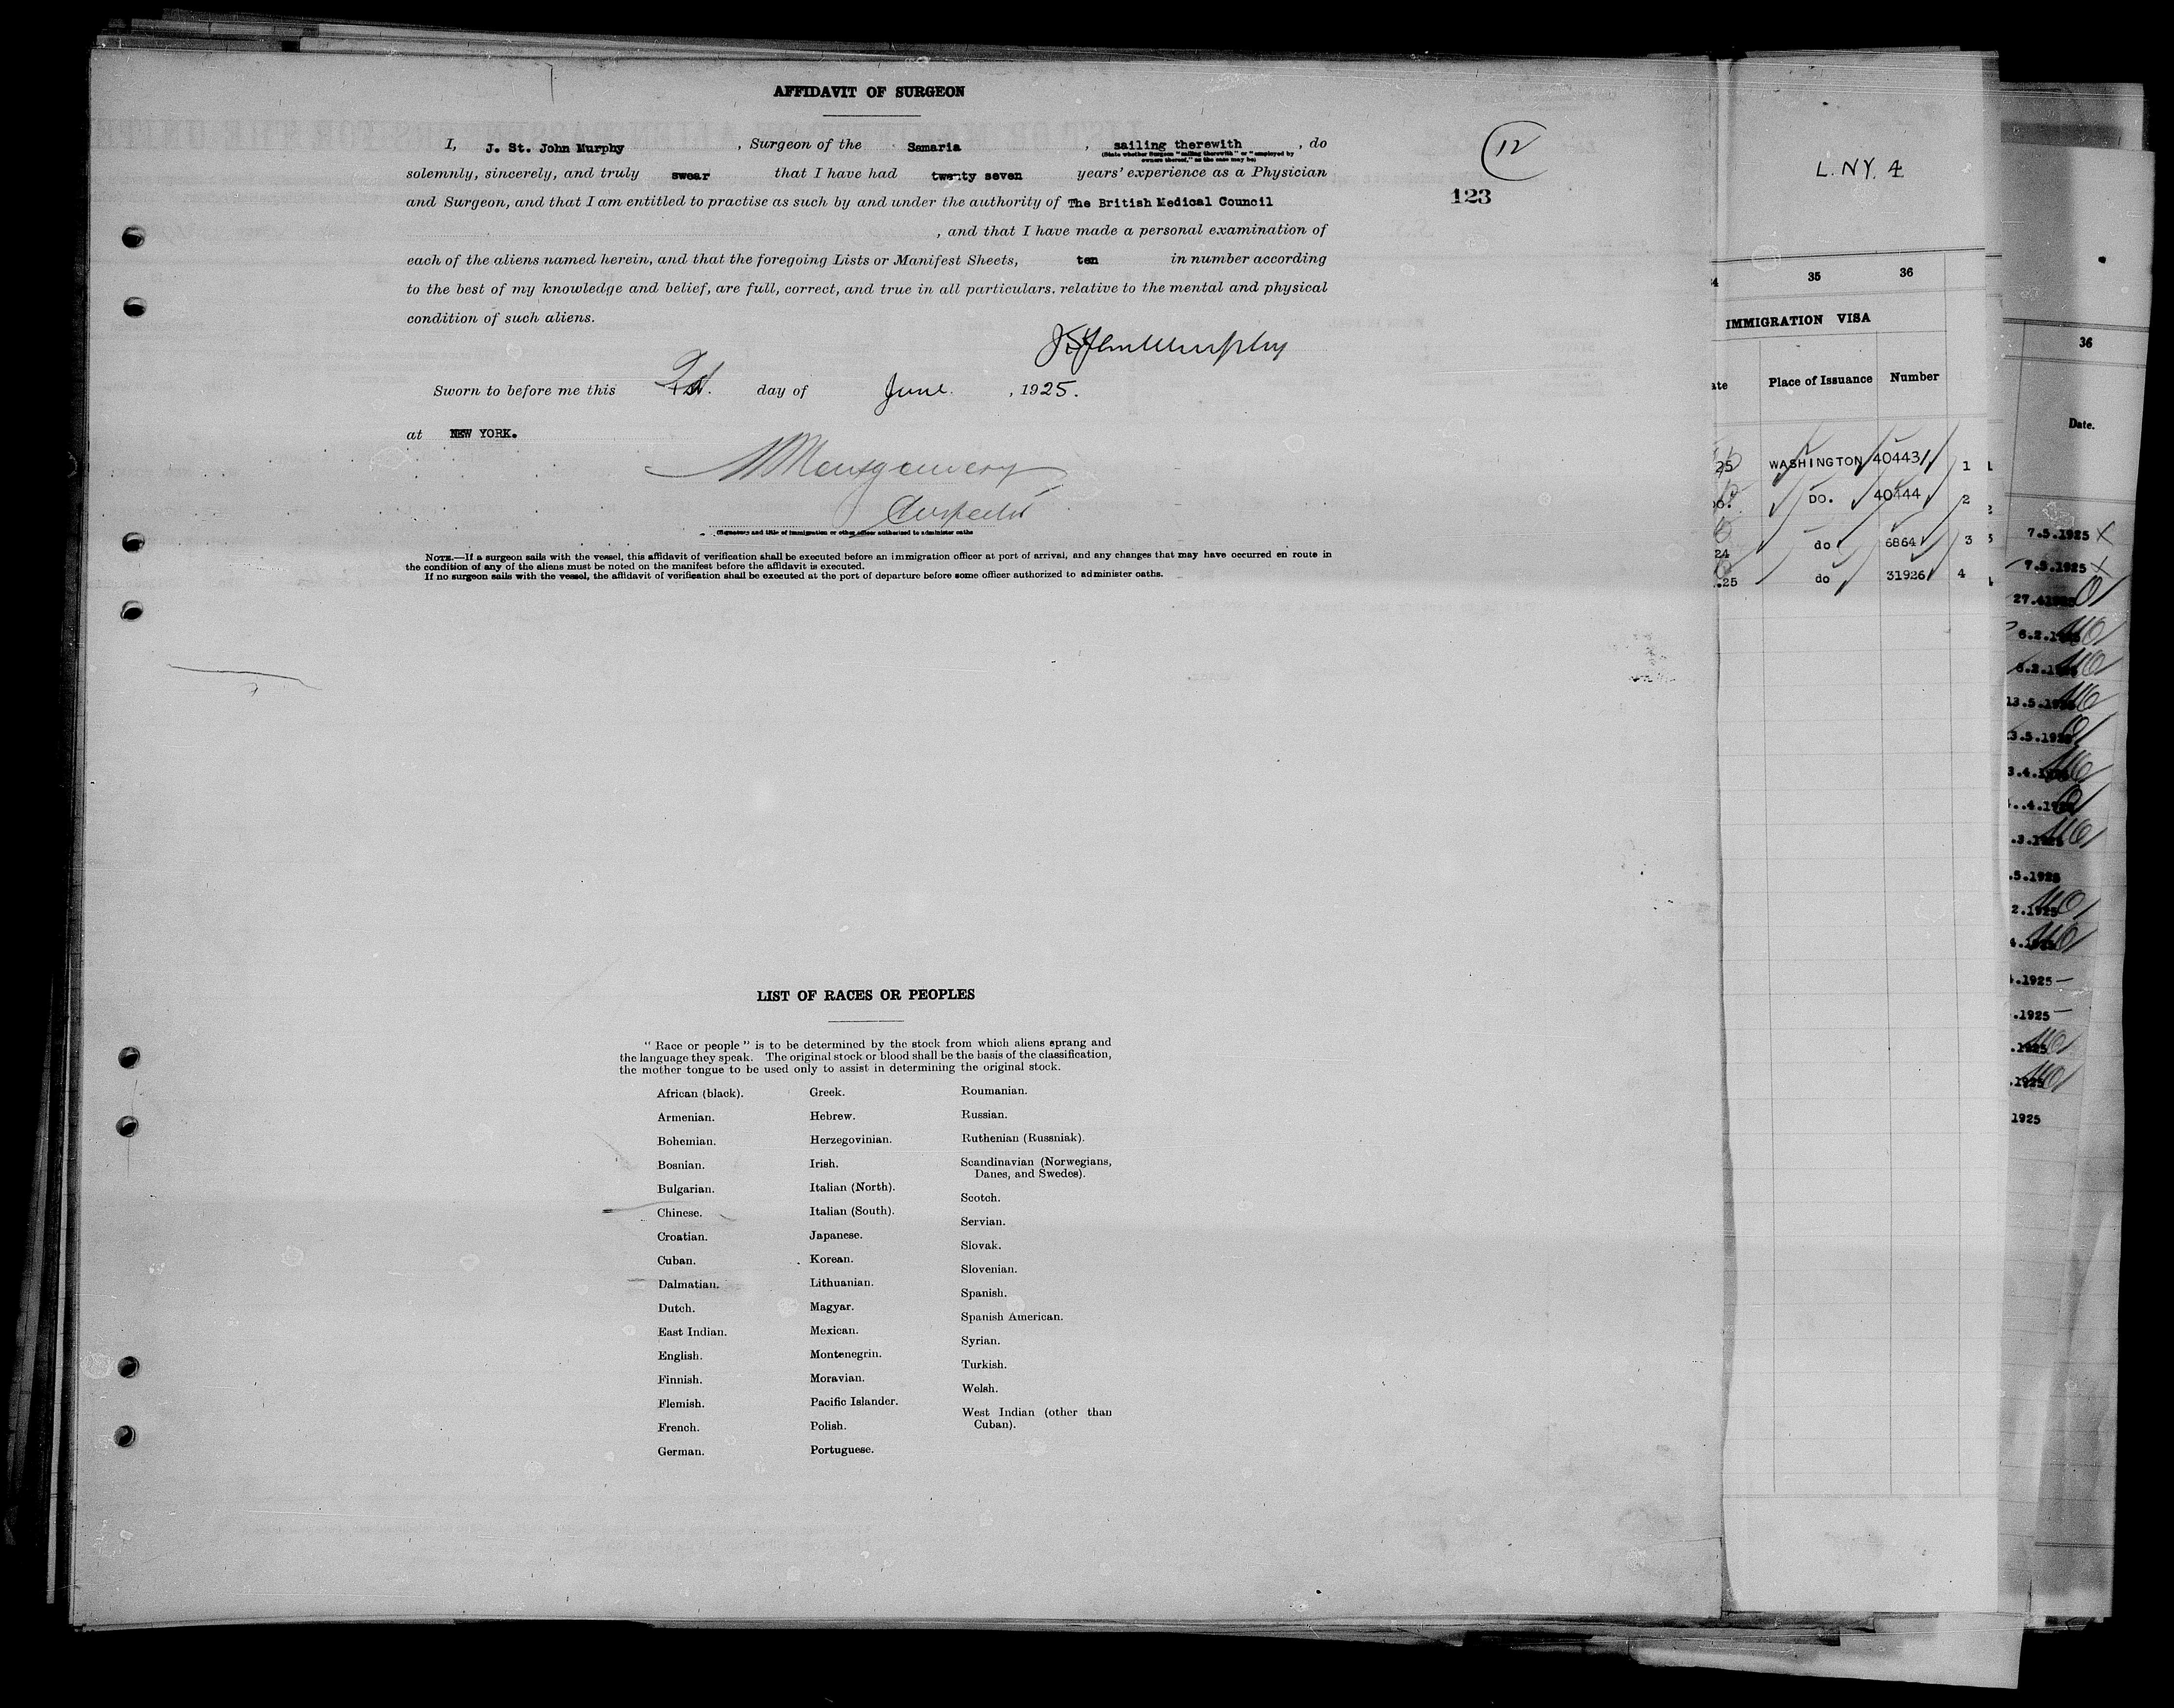 AFFIDAVIT OF SURGEON
I, J. St. John Murphy, Surgeon of the Samaria, sailing therewith, do
(State whether Surgeon "sailing therewith" or "employed by
owners thereof," as the case may be)
solemnly, sincerely, and truly swear that I have had twenty seven years' experience as a Physician
and Surgeon, and that I am entitled to practise as such by and under the authority of The British Medical Council
, and that I have made a personal examination of
each of the aliens named herein, and that the foregoing Lists or Manifest Sheets, ten in number according
to the best of my knowledge and belief, are full, correct, and true in all particulars. relative to the mental and physical
condition of such aliens.
J. St John Murphy
Sworn to before me this day of June. , 1925.
at NEW YORK.
Montgomery
Inspector
(Signature and title of immigration or other officer authorized to administer oaths
NOTE.—If a surgeon sails with the vessel, this affidavit of verification shall be executed before an immigration officer at port of arrival, and any changes that may have occurred en route in
the condition of any of the aliens must be noted on the manifest before the affidavit is executed.
If no surgeon sails with the vessel, the affidavit of verification shall be executed at the port of departure before some officer authorized to administer oaths.
12
123
LIST OF RACES OR PEOPLES
"Race or people" is to be determined by the stock from which aliens sprang and
the language they speak. The original stock or blood shall be the basis of the classification,
the mother tongue to be used only to assist in determining the original stock.
African (black).
Armenian.
Bohemian.
Bosnian.
Bulgarian.
Chinese.
Croatian.
Cuban.
Dalmatian.
Dutch.
East Indian.
English.
Finnish.
Flemish.
French.
German.
Greek.
Hebrew.
Herzegovinian.
Irish.
Italian (North).
Italian (South).
Japanese.
Korean.
Lithuanian.
Magyar.
Mexican.
Montenegrin.
Moravian.
Pacific Islander.
Polish.
Portuguese.
Roumanian.
Russian.
Ruthenian (Russniak).
Scandinavian (Norwegians,
Danes, and Swedes).
Scotch.
Servian.
Slovak.
Slovenian.
Spanish.
Spanish American.
Syrian.
Turkish.
Welsh.
West Indian (other than
Cuban).
L. NY. 4
35 36
IMMIGRATION VISA
Place of Issuance Number
25 WASHINGTON 40443 1
DO. 40444 2
24 do 6864 3
.25 do 31926 4
36
Date.
7.5.1925
7.5.1925
.5.1925
.1925
.1925
1925